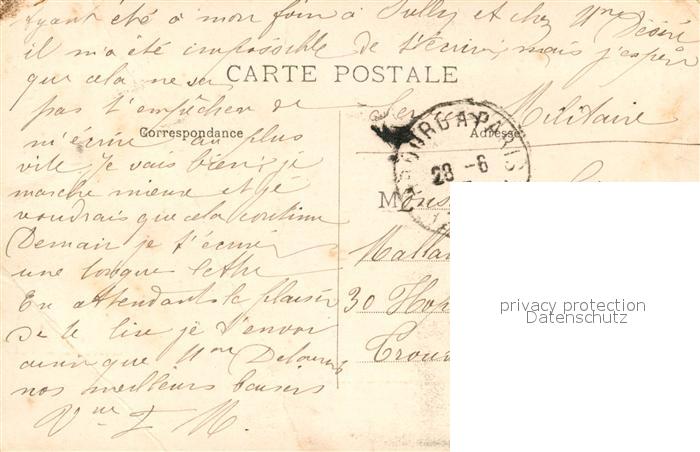 Ayant été à mon foin à Sully et chez Mme Désiré
il m'a été impossible de t'écrire, mais j'espère
que cela ne sera
CARTE POSTALE
pas t'empêcher de
Militaire
m'écrire au plus
Correspondance
Adresse
CHERBOURG A PARIS
vite. Je vais bien, je
28 -6
marche mieux et je
M
voudrais que cela continue
Demain je t'écrirai
une longue lettre
En attendant le plaisir
30
de te lire je t'envoi
ainsi que Mme Delaunay
nos meilleurs baisers
Vve L M.
privacy protection
Datenschutz